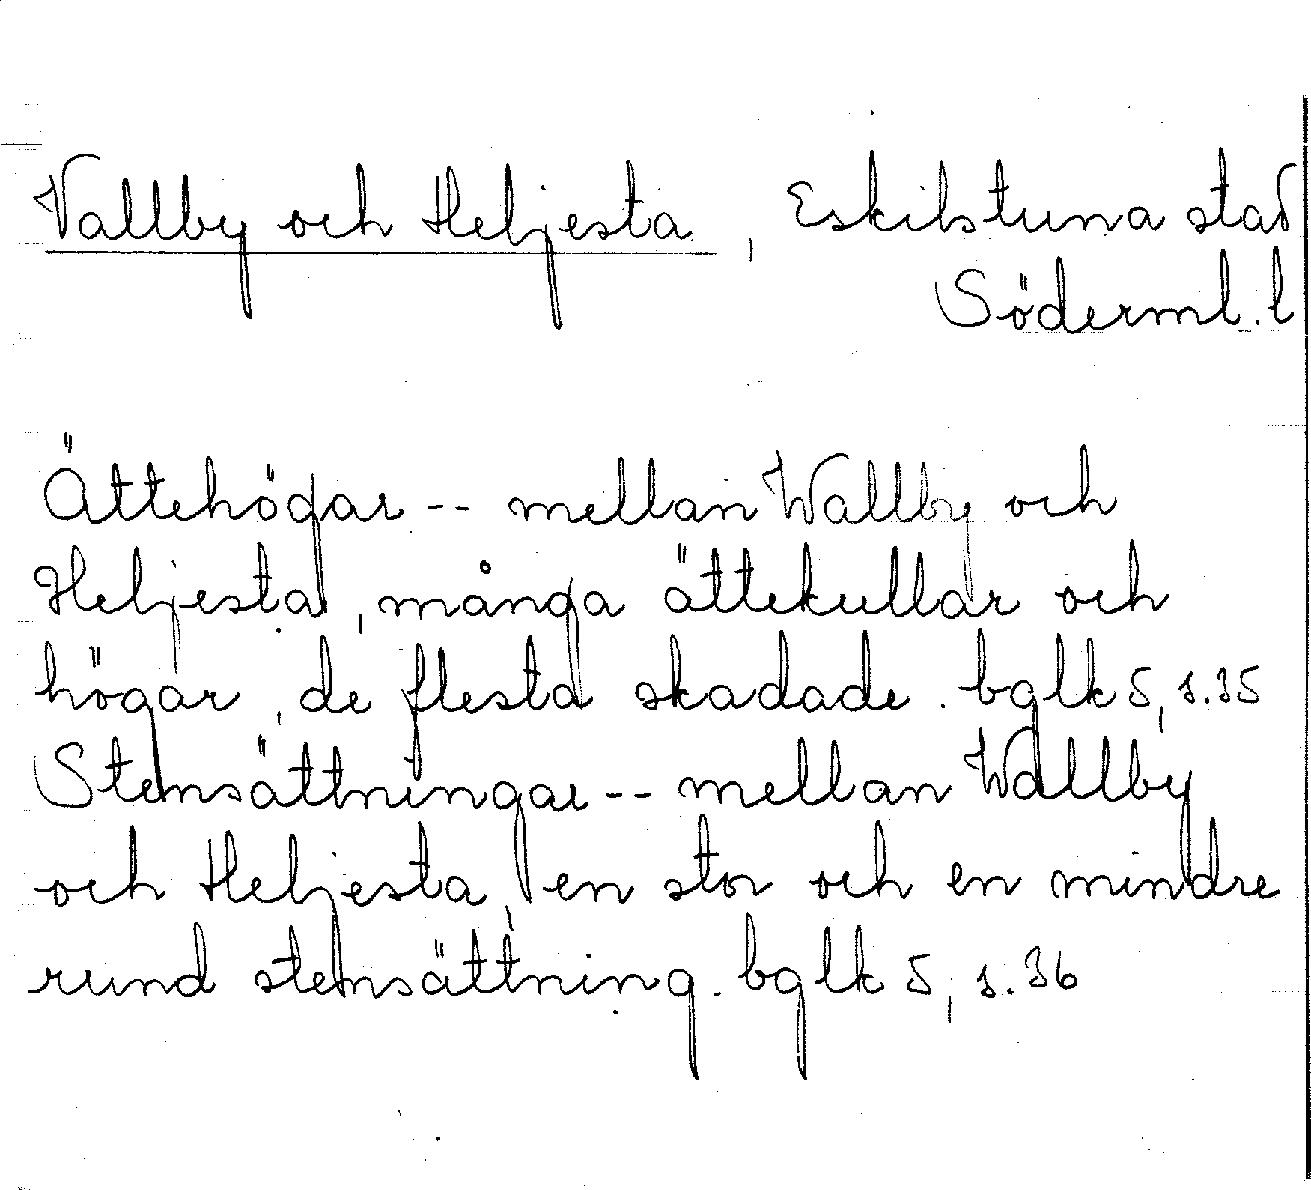 Vallby och Heljesta, Eskilstuna stad
Söderml. l
Ättehögar -- mellan Wallby och
Heljesta, många ättekullar och
högar, de flesta skadade. bglk 5, s. 35
Stensättningar -- mellan Wallby
och Heljesta, en stor och en mindre
rund stensättning. bglk 5, s. 36